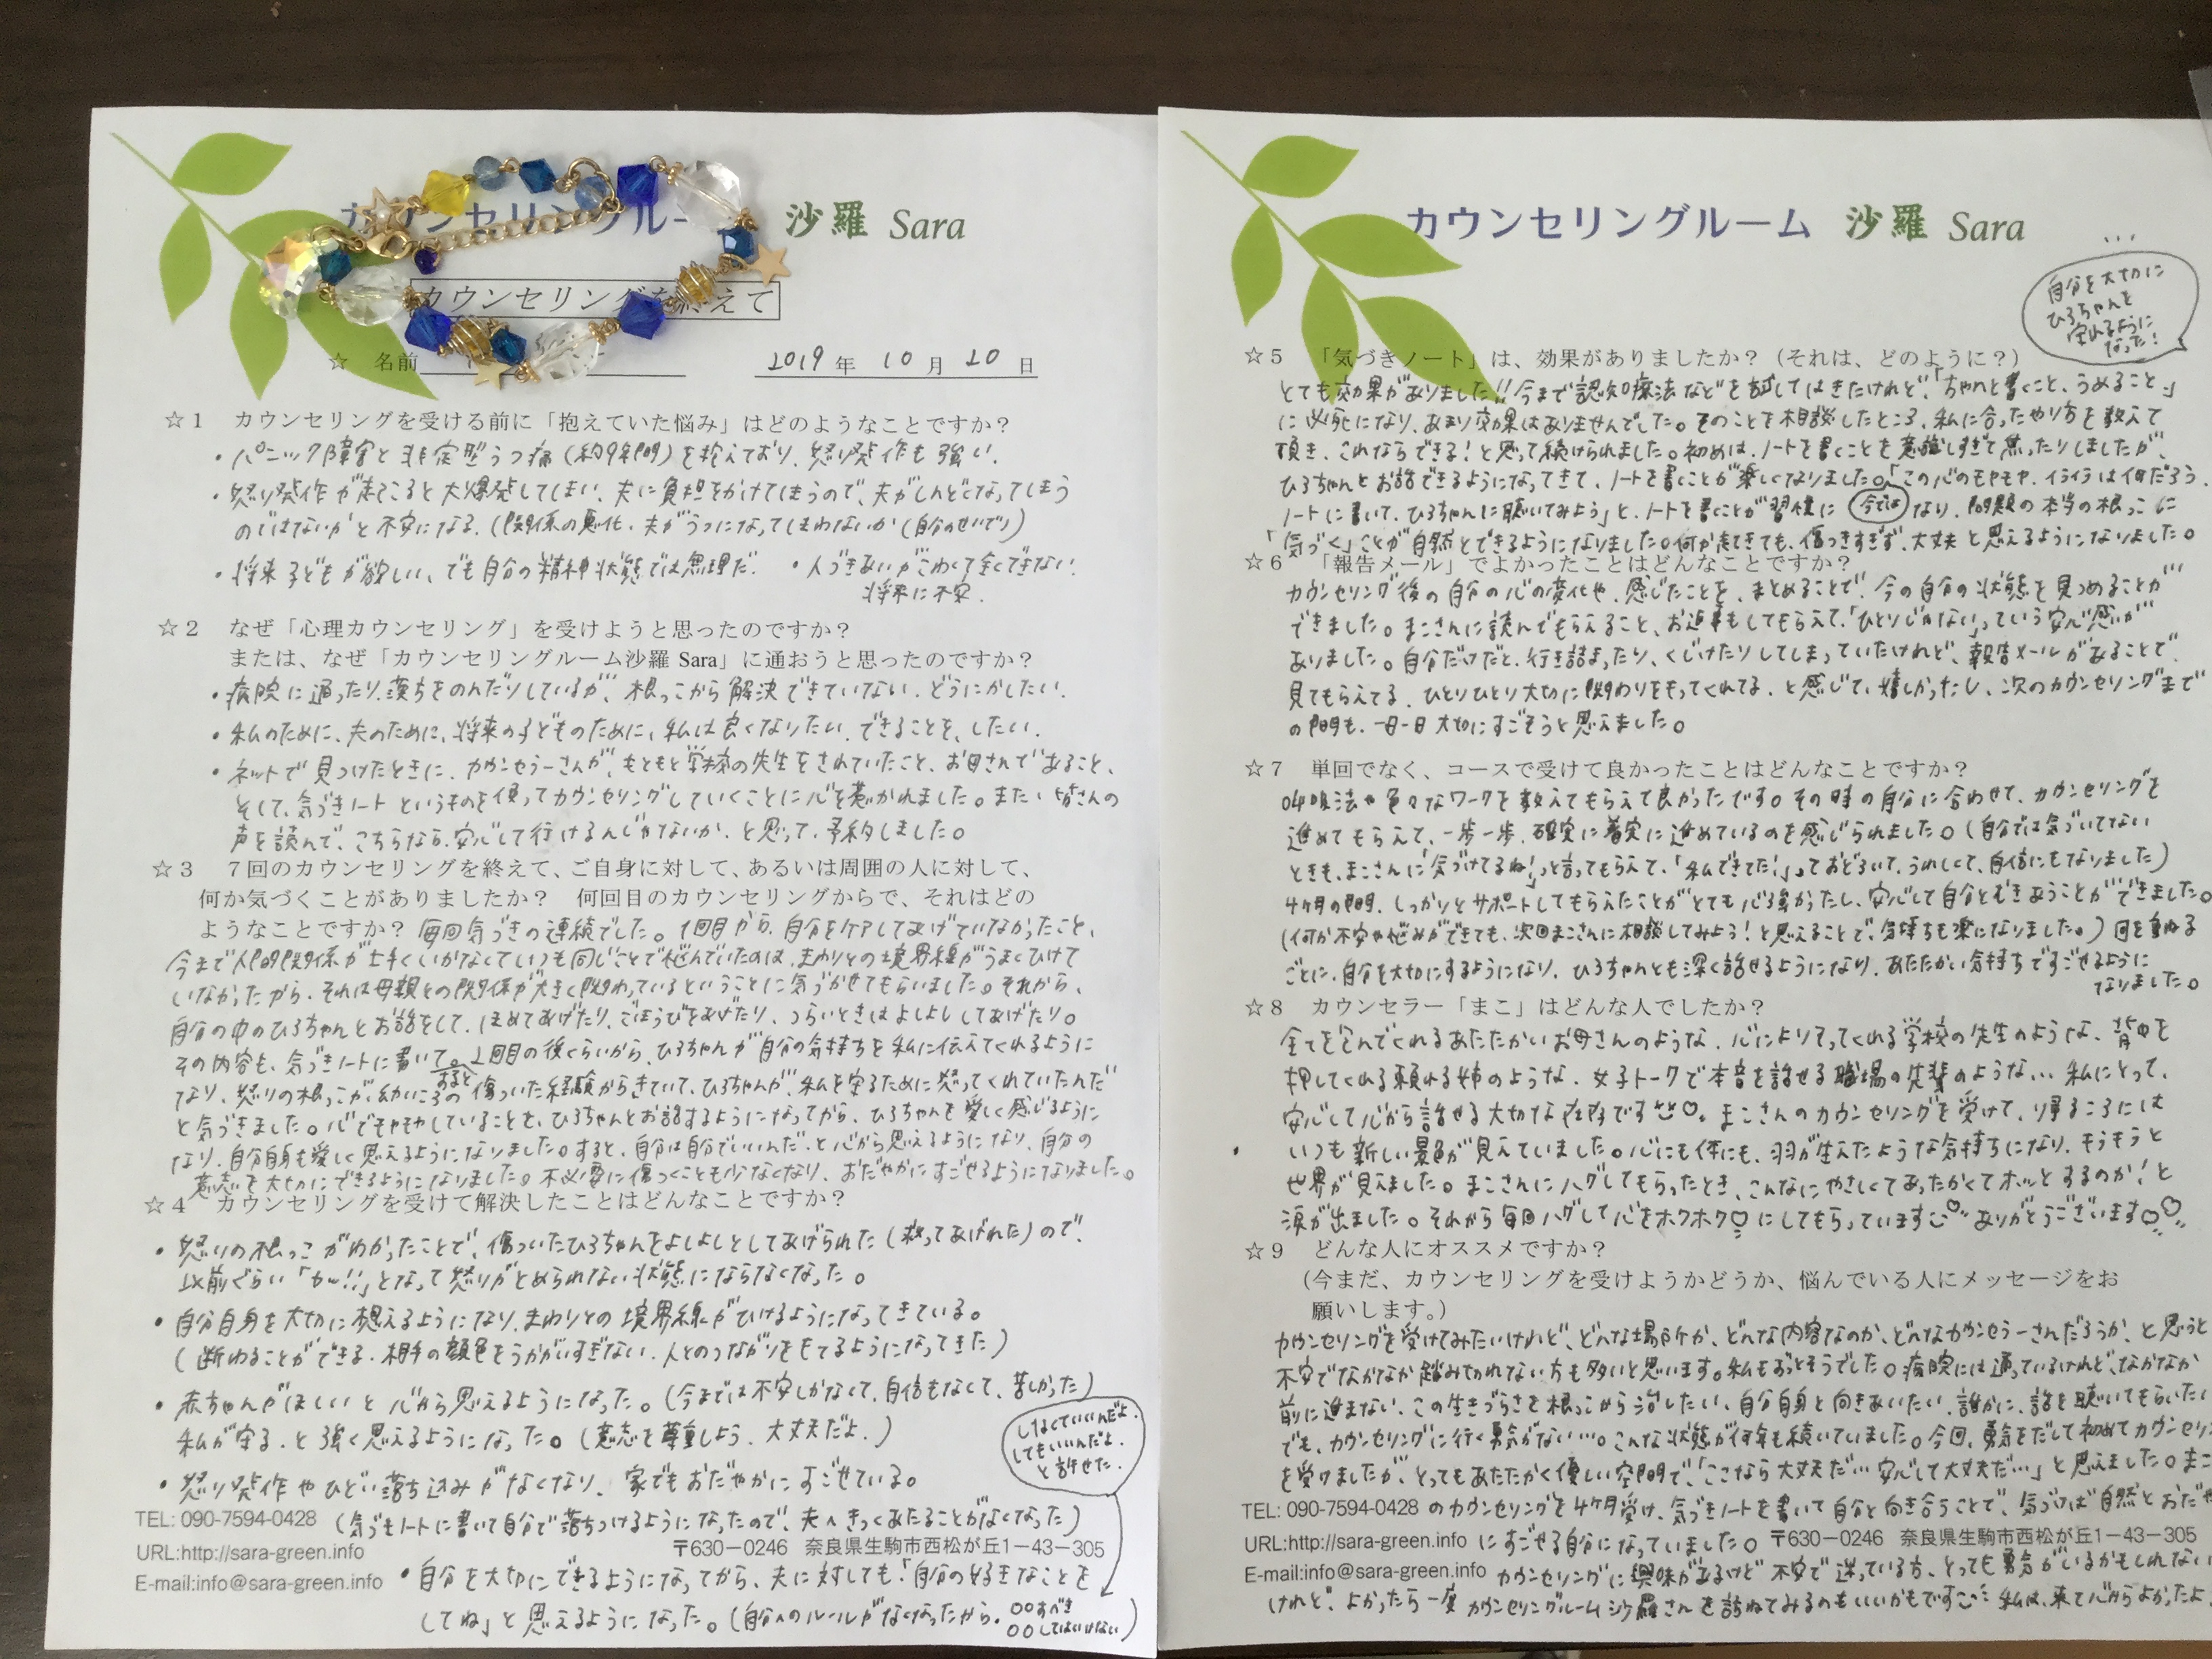 カウンセリングルーム 沙羅 Sara
カウンセリングを終えて
☆ 名前
2019年 10月 20日
☆1 カウンセリングを受ける前に「抱えていた悩み」はどのようなことですか?
・パニック障害と非定型うつ病(約9年間)を抱えており、怒り発作も強い。
・怒り発作が起こると大爆発してしまい、夫に負担をかけてしまうので、夫がしんどくなってしまう
のではないかと不安になる。(関係の悪化、夫がうつになってしまわないか(自分のせいで))
・将来子どもが欲しい、でも自分の精神状態では無理だ。 ・人づきあいがこわくて全くできない。
将来に不安。
☆2 なぜ「心理カウンセリング」を受けようと思ったのですか?
または、なぜ「カウンセリングルーム沙羅 Sara」に通おうと思ったのですか?
・病院に通ったり、薬ものんだりしているが、根っこから解決できていない。どうにかしたい。
・私のために、夫のために、将来の子どものために、私は良くなりたい。できることを、したい。
・ネットで見つけたときに、カウンセラーさんが、もともと学校の先生をされていたこと、お母さんであること、
そして、気づきノートというものを使ってカウンセリングしていくことに心を惹かれました。また、皆さんの
声を読んで、こちらなら、安心して行けるんじゃないか、と思って、予約しました。
☆3 7回のカウンセリングを終えて、ご自身に対して、あるいは周囲の人に対して、
何か気づくことがありましたか? 何回目のカウンセリングからで、それはどの
ようなことですか? 毎回気づきの連続でした。1回目から、自分をケアしてあげていなかったこと、
今まで人間関係が上手くいかなくていつも同じことで悩んでいたのは、まわりとの境界線がうまくひけて
いなかったから、それは母親との関係が大きく関わっているということに気づかせてもらいました。それから、
自分の中のひろちゃんとお話をして、ほめてあげたり、ごほうびをあげたり、つらいときはよしよししてあげたり。
その内容も、気づきノートに書いて。すると2回目の後くらいから、ひろちゃんが自分の気持ちを私に伝えてくれるように
なり、怒りの根っこが、幼いころの傷ついた経験からきていて、ひろちゃんが、私を守るために怒ってくれていたんだ
と気づきました。心でモヤモヤしていることを、ひろちゃんとお話するようになってから、ひろちゃんを愛しく感じるように
なり、自分自身も愛しく思えるようになりました。すると、自分は自分でいいんだ、と心から思えるようになり、自分の
意志を大切にできるようになりました。不必要に傷つくことも少なくなり、おだやかにすごせるようになりました。
☆4 カウンセリングを受けて解決したことはどんなことですか?
・怒りの根っこがわかったことで、傷ついたひろちゃんをよしよしとしてあげられた(救ってあげれた)ので、
以前ぐらい「カーッ!!」となって怒りがとめられない状態にならなくなった。
・自分自身を大切に想えるようになり、まわりとの境界線がひけるようになってきている。
(断わることができる。相手の顔色をうかがいすぎない、人とのつながりをもてるようになってきた)
・赤ちゃんがほしいと心から思えるようになった。(今までは不安しかなくて、自信もなくて、苦しかった)
私が守る、と強く思えるようになった。(意志を尊重しよう、大丈夫だよ。)
しなくていいんだよ。
してもいいんだよ。
と許せた。
・怒り発作やひどい落ち込みがなくなり、家でもおだやかにすごせている。
(気づきノートに書いて自分で落ちつけるようになったので、夫へきつくあたることがなくなった)
TEL: 090-7594-0428
URL:http://sara-green.info
〒630-0246 奈良県生駒市西松が丘1-43-305
E-mail:info@sara-green.info
・自分を大切にできるようになってから、夫に対しても「自分の好きなことを
してね」と思えるようになった。(自分へのルールがなくなったから。○○すべき ○○してはいけない)
カウンセリングルーム 沙羅 Sara
自分を大切に
ひろちゃんを
守れるように
なった!
☆5 「気づきノート」は、効果がありましたか?(それは、どのように?)
とても効果がありました!!今まで認知療法などを試してはきたけれど、「ちゃんと書くこと、うめること」
に必死になり、あまり効果はありませんでした。そのことを相談したところ、私に合ったやり方を教えて
頂き、これならできる!と思って続けられました。初めは、ノートを書くことを意識しすぎて焦ったりしましたが、
ひろちゃんとお話できるようになってきて、ノートを書くことが楽しくなりました。「この心のモヤモヤ、イライラは何だろう。
ノートに書いて、ひろちゃんに聴いてみよう」と、ノートを書くことが習慣に今ではなり、問題の本当の根っこに
「気づく」ことが自然とできるようになりました。何か起きても、傷つきすぎず、大丈夫と思えるようになりました。
☆6 「報告メール」でよかったことはどんなことですか?
カウンセリング後の自分の心の変化や、感じたことを、まとめることで、今の自分の状態を見つめることが
できました。まこさんに読んでもらえること、お返事もしてもらえて、「ひとりじゃない」っていう安心感が
ありました。自分だけだと、行き詰まったり、くじけたりしてしまっていたけれど、報告メールがあることで、
見てもらえてる、ひとりひとり大切に関わりをもってくれてる、と感じて、嬉しかったし、次のカウンセリングまで
の間も、一日一日大切にすごそうと思えました。
☆7 単回でなく、コースで受けて良かったことはどんなことですか?
呼吸法や色々なワークを教えてもらえて良かったです。その時の自分に合わせて、カウンセリングを
進めてもらえて、一歩一歩、確実に着実に進めているのを感じられました。(自分では気づいてない
ときも、まこさんに「気づけてるね!」と言ってもらえて、「私できてた!」っておどろいて、うれしくて、自信にもなりました)
4ヶ月の間、しっかりとサポートしてもらえたことがとても心強かったし、安心して自分とむきあうことができました。
(何か不安や悩みができても、次回まこさんに相談してみよう!と思えることで、気持ちも楽になりました。)回を重ねる
ごとに、自分を大切にするようになり、ひろちゃんとも深く話せるようになり、あたたかい気持ちですごせるように
なりました。
☆8 カウンセラー「まこ」はどんな人でしたか?
全てを包んでくれるあたたかいお母さんのような、心によりそってくれる学校の先生のような、背中を
押してくれる頼れる姉のような、女子トークで本音を話せる職場の先輩のような… 私にとって、
安心して心から話せる大切な存在です♡。まこさんのカウンセリングを受けて、帰るころには
いつも新しい景色が見えていました。心にも体にも、羽が生えたような気持ちになり、もうもうと
世界が見えました。まこさんにハグしてもらったとき、こんなにやさしくてあったかくてホッとするのか!と
涙が出ました。それから毎回ハグして心をホクホク♡にしてもらっています♡ ありがとうございます♡♡
☆9 どんな人にオススメですか?
(今まだ、カウンセリングを受けようかどうか、悩んでいる人にメッセージをお
願いします。)
カウンセリングを受けてみたいけれど、どんな場所か、どんな内容なのか、どんなカウンセラーさんだろうか、と思うと
不安でなかなか踏みきれない方も多いと思います。私もずっとそうでした。病院には通っているけれど、なかなか
前に進まない、この生きづらさを根っこから治したい、自分自身と向きあいたい、誰かに、話を聴いてもらいたい
でも、カウンセリングに行く勇気がない…。こんな状態が何年も続いていました。今回、勇気をだして初めてカウンセリン
を受けましたが、とってもあたたかく優しい空間で、「ここなら大丈夫だ…安心して大丈夫だ…」と思えました。まこ
TEL: 090-7594-0428 のカウンセリングを4ヶ月受け、気づきノートを書いて自分と向き合うことで、気づけば自然とおだや
URL:http://sara-green.info にすごせる自分になっていました。 〒630-0246 奈良県生駒市西松が丘1-43-305
E-mail:info@sara-green.info カウンセリングに興味があるけど不安で迷っている方、とっても勇気がいるかもしれない
けれど、よかったら一度カウンセリングルーム沙羅さんを訪ねてみるのもいいかもです 私は、来て心からよかったよ